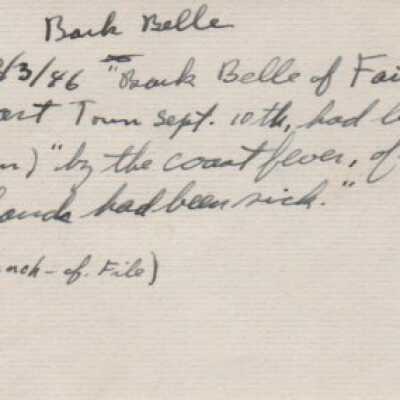 Bark Belle
/3/46 "Bark Belle of Fai
Town Sept. 10th, had l
) "by the coast fever, of
had been sick."
of. File)